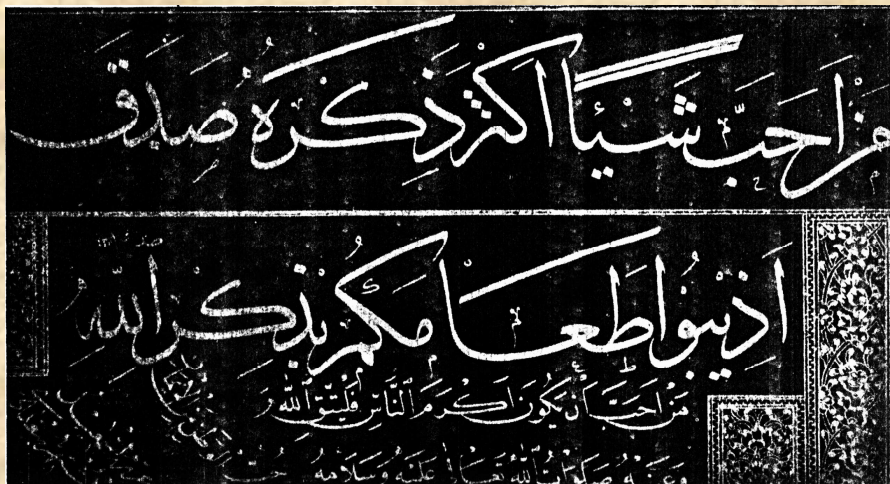 مَنْ اَحَبَّ شَيْئًا اَكْثَرَ ذِكْرَهُ صَدَقَ
اَذِيبُوا طَعَامَكُمْ بِذِكْرِ اللّٰهِ
مَنْ اَحَبَّ اَنْ يَكُونَ اَكْرَمَ النَّاسِ فَلْيَتَّقِ اللّٰهَ
وَعَنْهُ صَلَوَاتُ اللّٰهِ تَعَالٰى عَلَيْهِ وَسَلَامُهُ